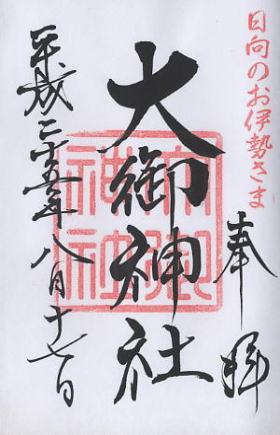 日向のお伊勢さま
奉拝
大御神社
大御神社
平成二十五年八月十七日